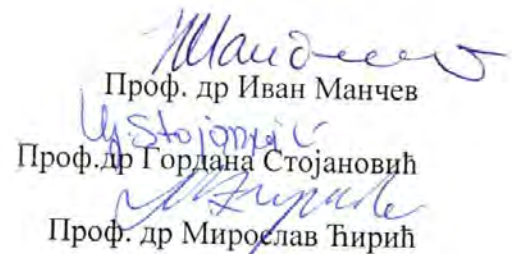 Проф. др Иван Манчев
Проф.др Гордана Стојановић
Проф. др Мирослав Ћирић